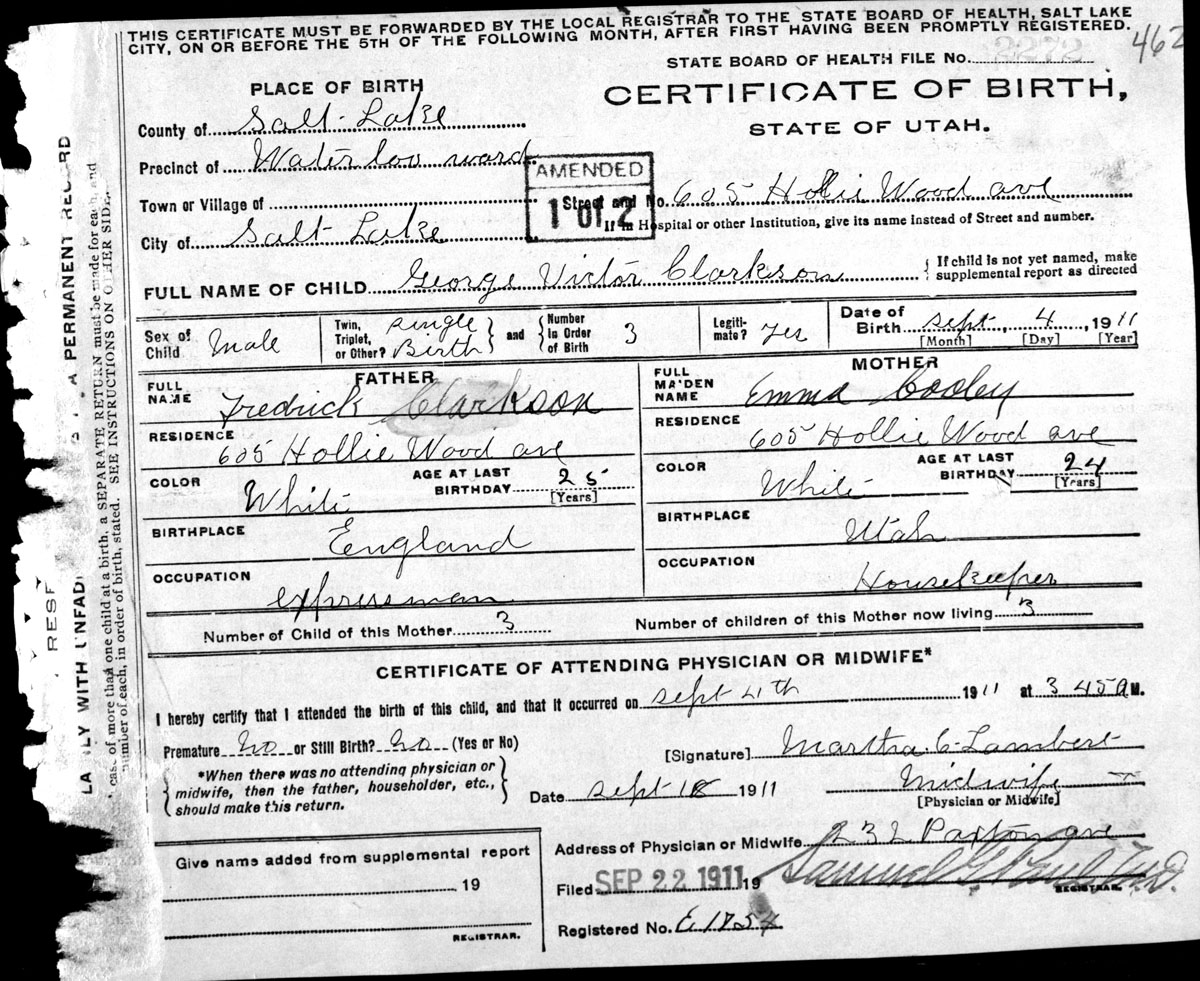 THIS CERTIFICATE MUST BE FORWARDED BY THE LOCAL REGISTRAR TO THE STATE BOARD OF HEALTH, SALT LAKE
CITY, ON OR BEFORE THE 5TH OF THE FOLLOWING MONTH, AFTER FIRST HAVING BEEN PROMPTLY REGISTERED.
462
STATE BOARD OF HEALTH FILE No. 2272
PLACE OF BIRTH
CERTIFICATE OF BIRTH,
STATE OF UTAH.
County of Salt Lake
Precinct of Water loo ward
AMENDED
1 of 2
Town or Village of
Street and No. 605 Hollie Wood ave
If in Hospital or other Institution, give its name instead of Street and number.
City of Salt Lake
FULL NAME OF CHILD George Victor Clarkson
If child is not yet named, make
supplemental report as directed
Sex of Child Male
Twin, Triplet, or Other? single Birth
and Number In Order of Birth 3
Legitimate? Yes
Date of Birth sept, 4, 1911
[Month] [Day] [Year]
FATHER
FULL NAME Fredrick Clarkson
RESIDENCE 605 Hollie Wood ave
COLOR White
AGE AT LAST BIRTHDAY 25 [Years]
BIRTHPLACE England
OCCUPATION expressman
MOTHER
FULL MAIDEN NAME Emma Cooley
RESIDENCE 605 Hollie Wood ave
COLOR White
AGE AT LAST BIRTHDAY 24 [Years]
BIRTHPLACE Utah
OCCUPATION Housekeeper
Number of Child of this Mother 3
Number of children of this Mother now living 3
CERTIFICATE OF ATTENDING PHYSICIAN OR MIDWIFE*
I hereby certify that I attended the birth of this child, and that it occurred on sept 4th 1911 at 3 45 a M.
Premature no or Still Birth? no (Yes or No)
[Signature] Martha C Lambert
*When there was no attending physician or
midwife, then the father, householder, etc.,
should make this return.
Date sept 18 1911
Midwife
[Physician or Midwife]
Give name added from supplemental report
19
REGISTRAR.
Address of Physician or Midwife 232 Paxton ave
Filed SEP 22 1911 19
Samuel G. Paul M.D.
REGISTRAR.
Registered No. E 1754
A PERMANENT RECORD
RESE
LAINLY WITH UNFADI
case of more than one child at a birth, a SEPARATE RETURN must be made for each, and
number of each, in order of birth, stated. SEE INSTRUCTIONS ON OTHER SIDE.